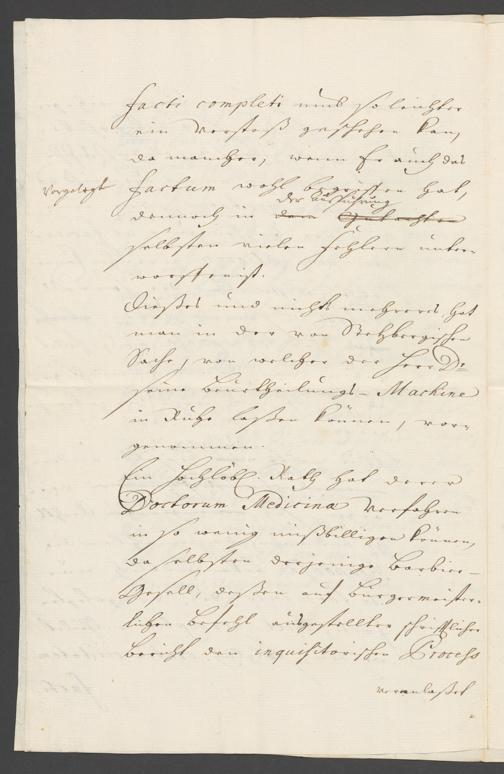 facti completi um so leichter
ein Verstoß geschehen kan,
da mancher, wenn Er auch das
vorgelegt
factum wohl begriffen hat,
der Ausführung
dennoch in dem Gutachten
selbsten vielen Fehlern unter-
worffen ist.
Dießes und nichts mehrers hat
man in der von Stehbergischen
Sache, von welcher der Herr Dr
seine Beurtheilungs-Machine
in Ruhe laßen können, vor-
genommen.
Ein Hochlöbl. Rath hat derer
Doctorum Medicinæ Verfahren
in so wenig mißbilligen können,
da selbsten derjenige Barbier-
Gesell, deßen auf Burgermeister-
lichen Befehl ausgestellter schrifftlicher
Bericht den inquisitorischen Process
veranlaßet